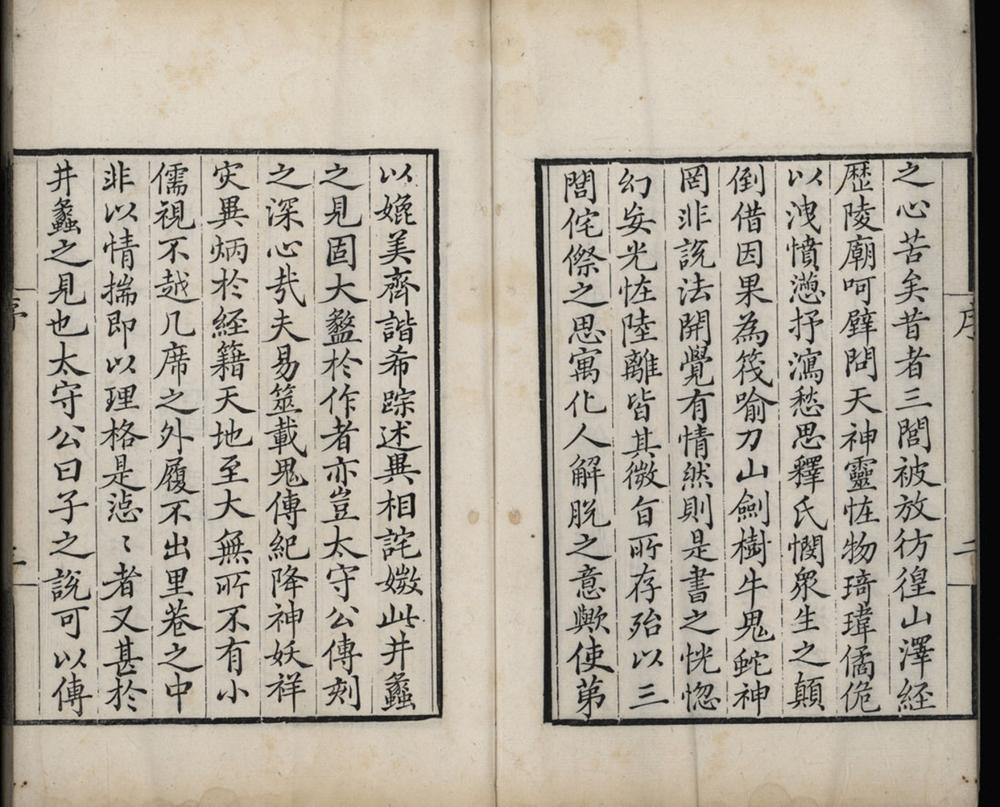 之心苦矣昔者三閭被放彷徨山澤經
歷陵廟呵壁問天神靈恠物琦瑋僪佹
以洩憤懣抒瀉愁思釋氏憫衆生之顛
倒借因果為筏喻刀山劍樹牛鬼蛇神
罔非說法開覺有情然則是書之恍惚
幻妄光恠陸離皆其微旨所存殆以三
閭侘傺之思寓化人解脫之意歟使第
以媲美齊諧希踪述異相詫媺此井蠡
之見固大盭於作者亦豈太守公傳刻
之深心哉夫易筮載鬼傳紀降神妖祥
灾異炳於經籍天地至大無所不有小
儒視不越几席之外履不出里巷之中
非以情揣即以理格是惉〻者又甚於
井蠡之見也太守公曰子之說可以傳
序
二
序